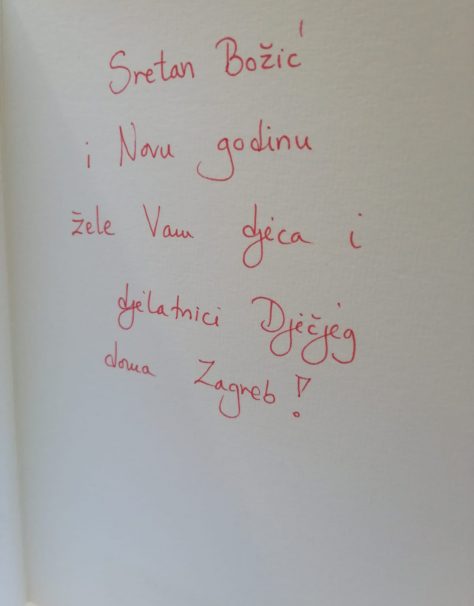 Sretan Božić
i Novu godinu
žele Vam djeca i
djelatnici Dječjeg
doma Zagreb!